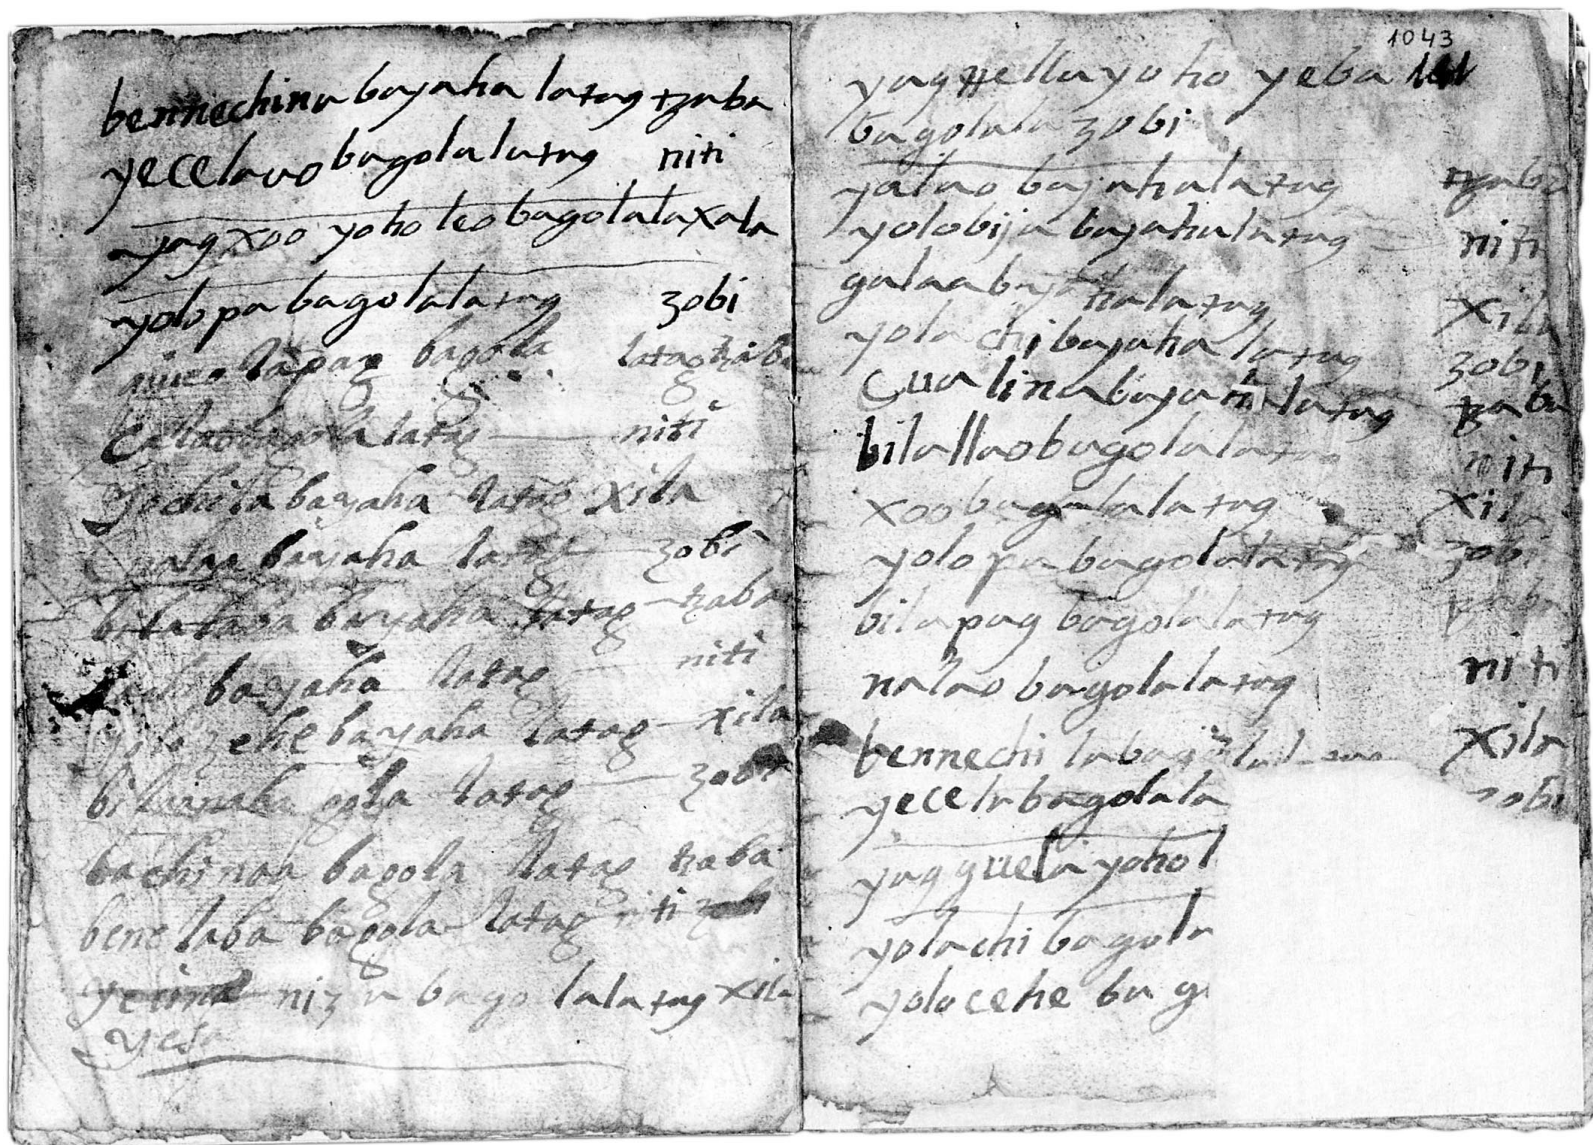 bennechina bayaha latag tzaba
yecelavo bagolalatag niti
yag xoo yoho leo bagolala xala
yolopa bagolalatag zobi
lapag bagola latag tzaba
bagola latag niti
Yochila bayaha latag xila
bayaha latag zobi
bilalaba bayaha latag tzaba
bayaha latag niti
yolo zehe bayaha latag xila
gola latag zobi
bachinaa bagola latag tzaba
bene laba bagola latag niti
niza bagolalatag xila
yesa
1043
yag uella yoho yeba
bagolala zobi
yalao bayahalatag tzaba
yolobija bayahalatag niti
galaa bayahalatag xila
yolachi bayahalatag zobi
Cualina bayahalatag tzaba
bilallao bagolalatag niti
xoo bagolalatag xila
yolopa bagolalatag zobi
bilapag bagolalatag tzaba
nalao bagolalatag niti
bennechi la bagolalatag xila
yecela bagolala zobi
yag guela yoho l
yolachi bagola
yolocehe bag